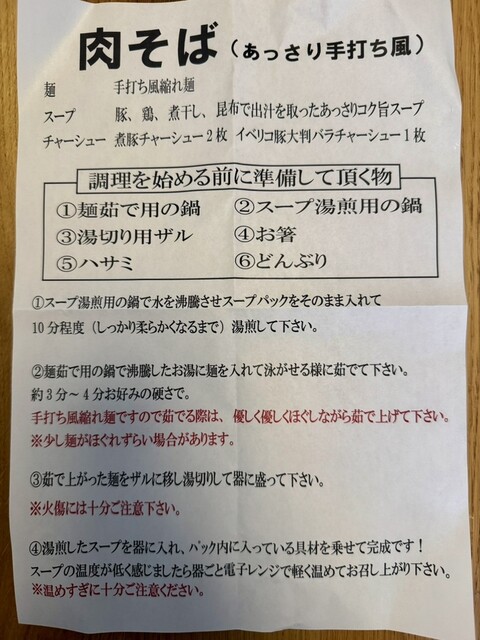 肉そば（あっさり手打ち風）
麺　手打ち風縮れ麺
スープ　豚、鶏、煮干し、昆布で出汁を取ったあっさりコク旨スープ
チャーシュー　煮豚チャーシュー2枚　イベリコ豚大判バラチャーシュー1枚
調理を始める前に準備して頂く物
①麺茹で用の鍋　②スープ湯煎用の鍋
③湯切り用ザル　④お箸
⑤ハサミ　⑥どんぶり
①スープ湯煎用の鍋で水を沸騰させスープパックをそのまま入れて
10分程度（しっかり柔らかくなるまで）湯煎して下さい。
②麺茹で用の鍋で沸騰したお湯に麺を入れて泳がせる様に茹でて下さい。
約3分～4分お好みの硬さで。
手打ち風縮れ麺ですので茹でる際は、優しく優しくほぐしながら茹で上げて下さい。
※少し麺がほぐれずらい場合があります。
③茹で上がった麺をザルに移し湯切りして器に盛って下さい。
※火傷には十分ご注意下さい。
④湯煎したスープを器に入れ、パック内に入っている具材を乗せて完成です！
スープの温度が低く感じましたら器ごと電子レンジで軽く温めてお召し上がり下さい。
※温めすぎに十分ご注意ください。